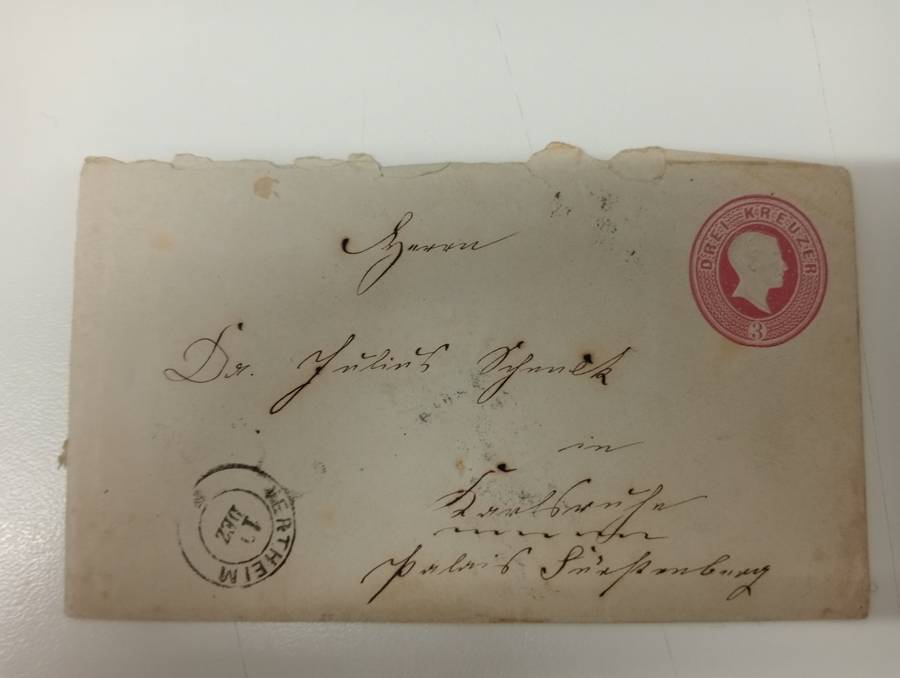 DREI KREUZER
3
Herrn
Dr. Julius Schenck
in
Karlsruhe
Palais Fürstenberg
WERTHEIM
DEZ